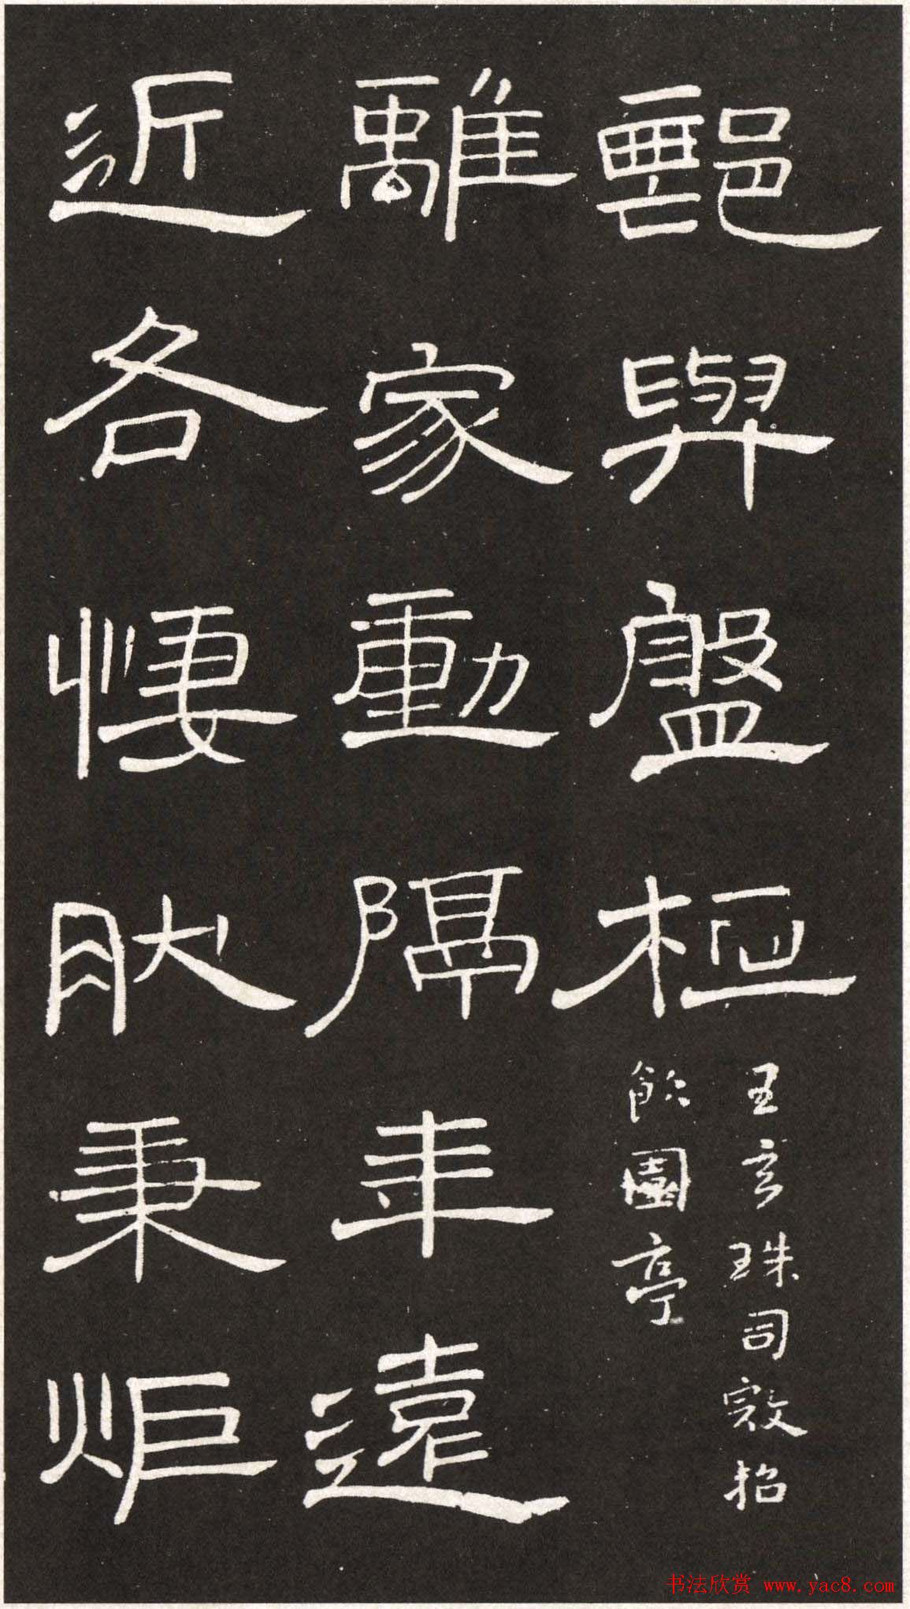 與盤桓
王玄珠司寇招
飲園亭
離家動隔年遠
近各悽肰秉炬
书法欣赏 www.yac8.com